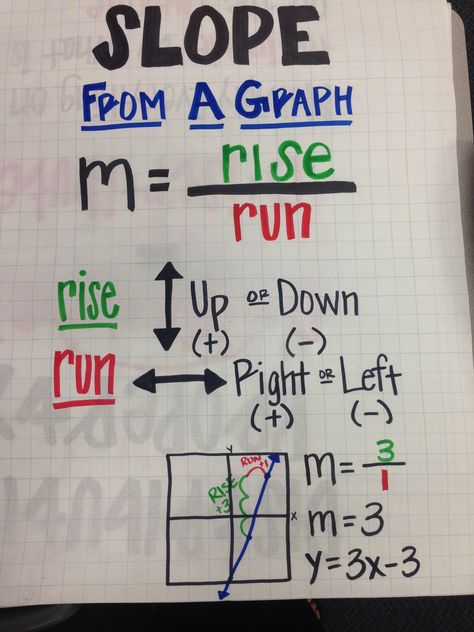 SLOPE
FROM A GRAPH
m = rise
run
rise Up OR Down
(+) (-)
run Right OR Left
(+) (-)
y
RUN
+1
RISE
+3
x
m = 3
1
m = 3
y = 3x - 3